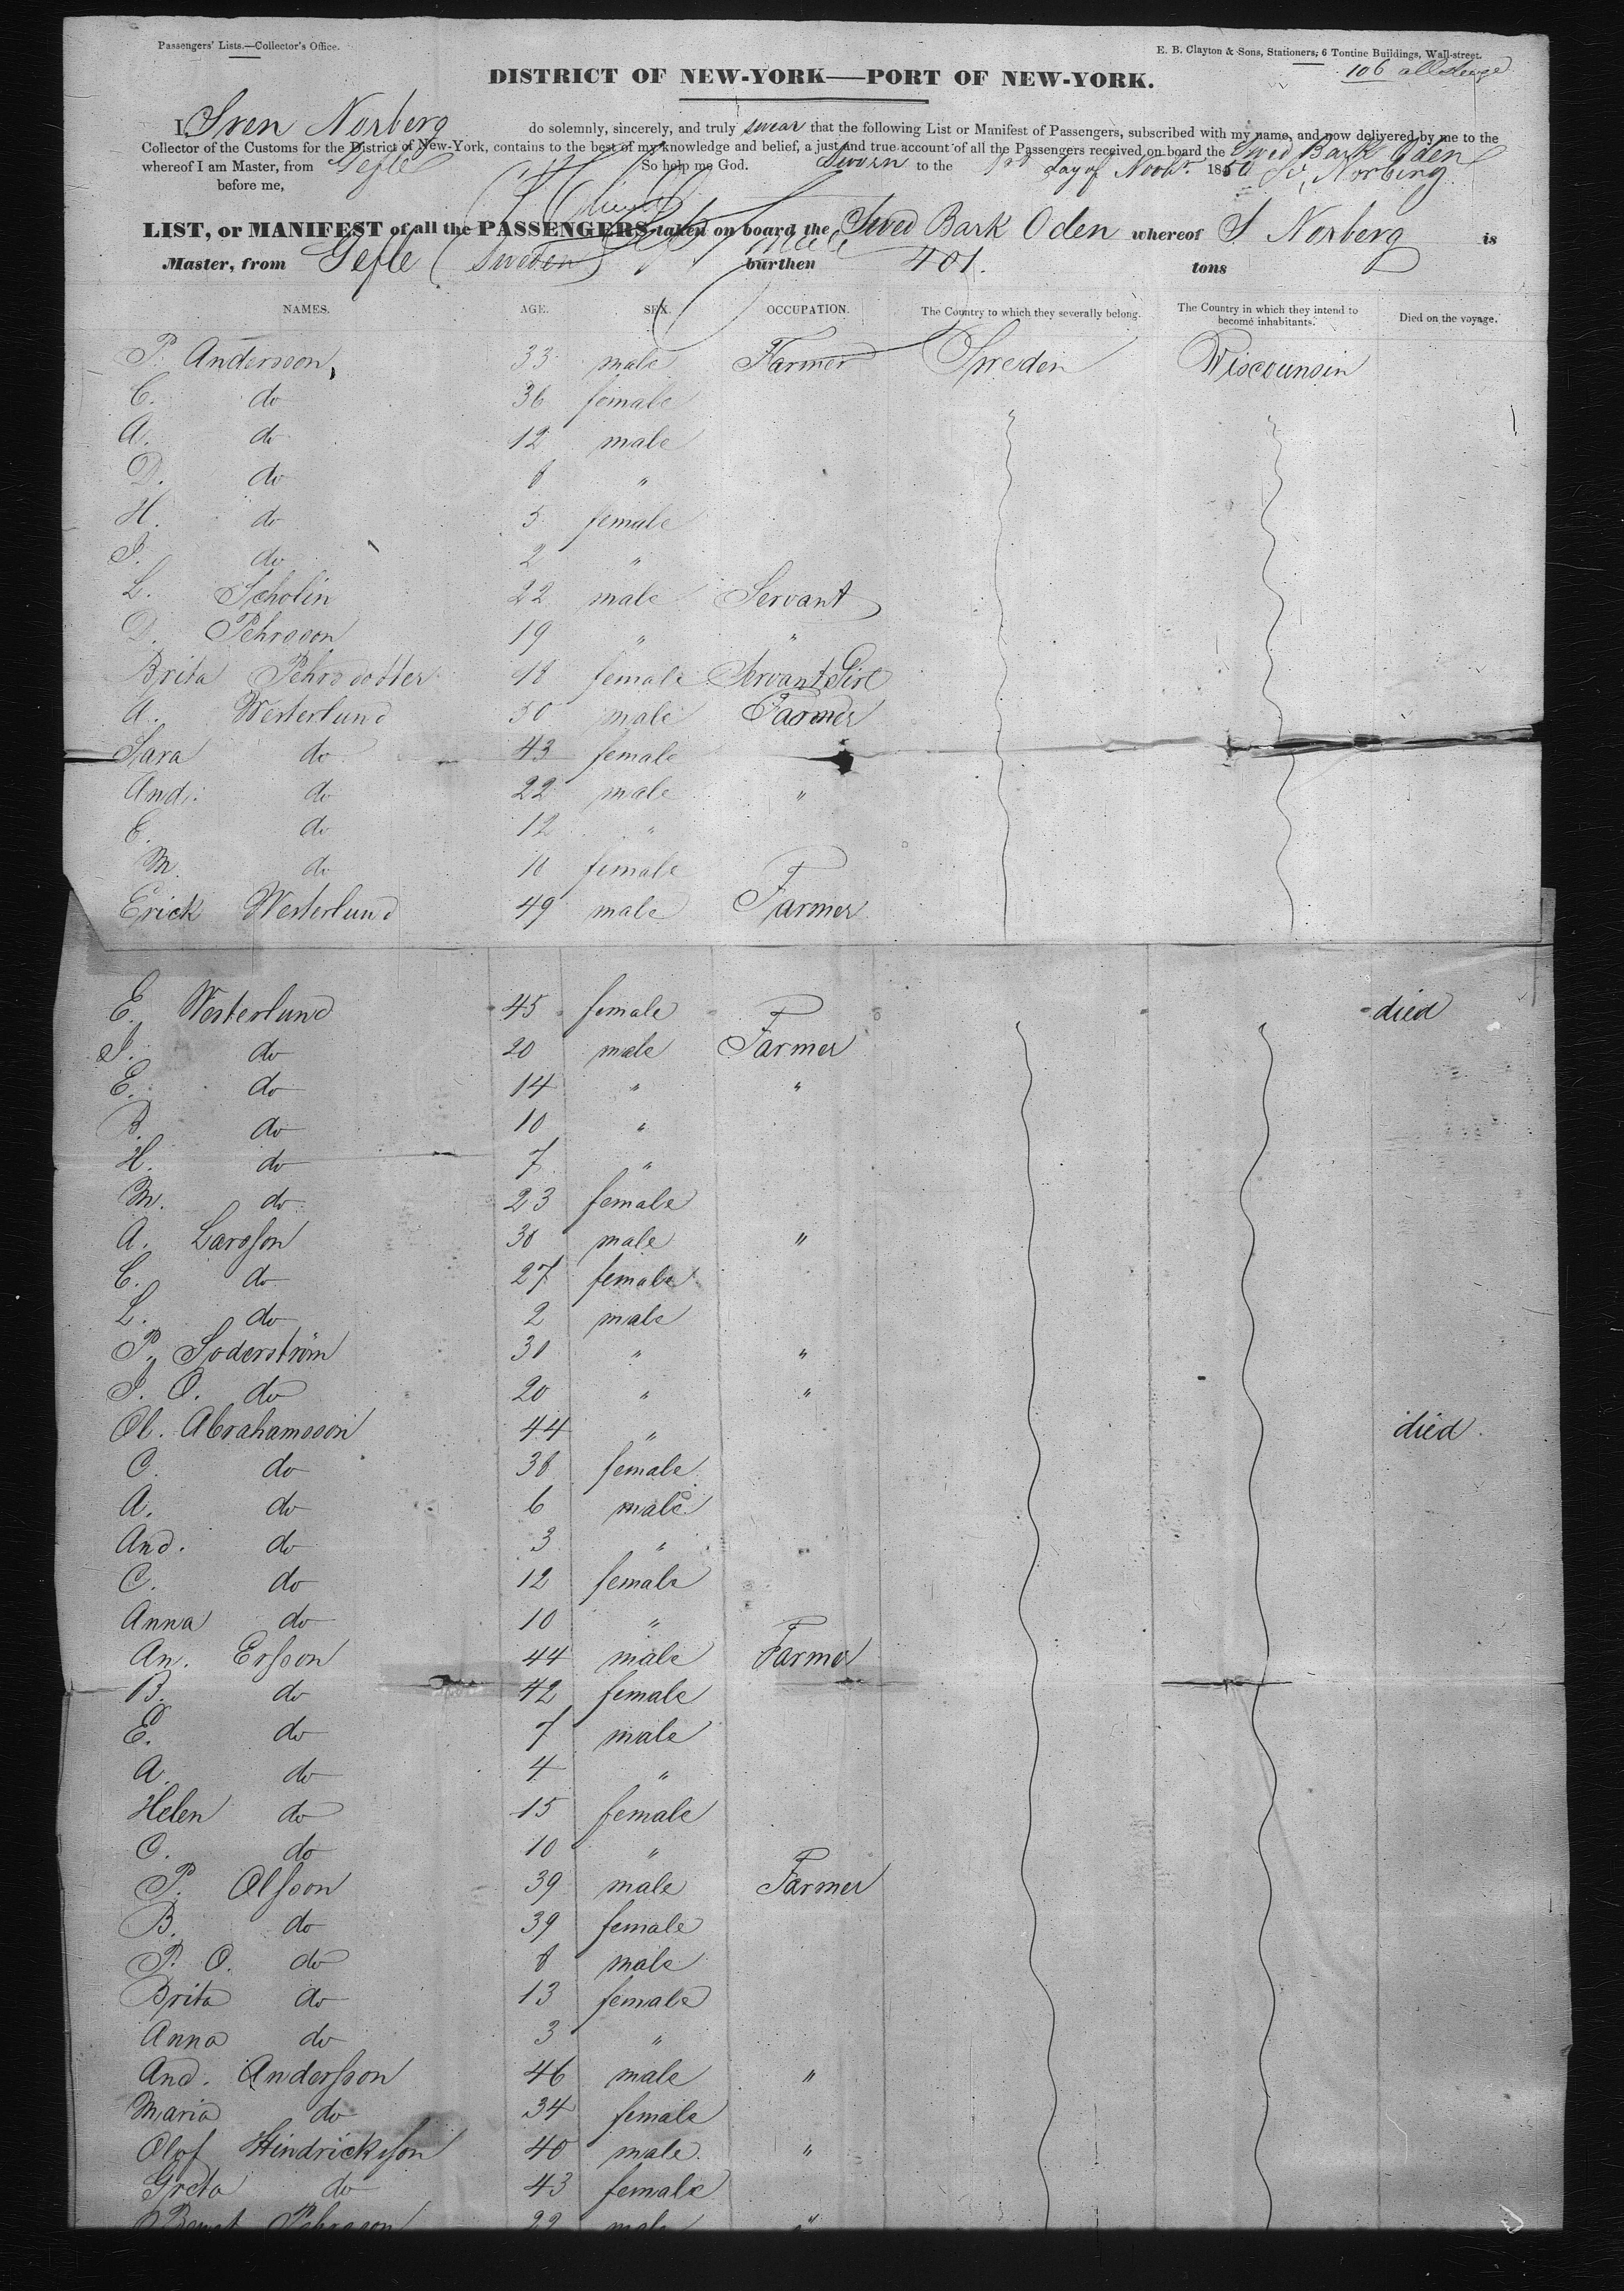 Passengers' Lists.—Collector's Office.
E. B. Clayton & Sons, Stationers, 6 Tontine Buildings, Wall-street.
106 all
DISTRICT OF NEW-YORK—PORT OF NEW-YORK.
I Sven Norberg do solemnly, sincerely, and truly swear that the following List or Manifest of Passengers, subscribed with my name, and now delivered by me to the
Collector of the Customs for the District of New-York, contains to the best of my knowledge and belief, a just and true account of all the Passengers received on board the Swed Bark Oden
whereof I am Master, from Gefle So help me God. Sworn to the day of Novbr. 1850 Sv. Norberg
before me,
LIST, or MANIFEST of all the PASSENGERS taken on board the Swed Bark Oden whereof S. Norberg is
Master, from Gefle (Sweden) burthen 401. tons
NAMES. AGE. SEX. OCCUPATION. The Country to which they severally belong. The Country in which they intend to become inhabitants. Died on the voyage.
P. Andersson, 33 male Farmer Sweden Wiscounsin
C. do 36 female
A. do 12 male
D. do 8 "
H. do 5 female
do 2 "
L. Scholin 22 male Servant
D. Pehrsson 19 " "
Brita Pehrsdotter 18 female Servant Girl
A. Westerlund 50 male Farmer
Sara do 43 female
And. do 22 male "
C. do 12 "
M. do female
Erick Westerlund 49 male Farmer
E. Westerlund 45 female died
J. do 20 male Farmer
E. do 14 " "
B. do 10 "
H. do 7 "
M. do 23 female
A. Larsson 30 male "
C. do 27 female
L. do 2 male
P. Soderström 30 " "
J. O. do 20 " "
Ol. Abrahamsson 44 " died
C. do 38 female
A. do 6 male
And. do 3 "
C. do 12 female
Anna do 10 "
An. Ersson 44 male Farmer
B. do 42 female
E. do 7 male
A. do 4 "
Helen do 15 female
C. do 10 "
P. Olsson 39 male Farmer
B. do 39 female
P. O. do 8 male
Brita do 13 female
Anna do 3 "
And. Andersson 46 male "
Maria do 34 female
Olof Hindricksson 40 male "
Greta do 43 female
Pehrsson 22 male "